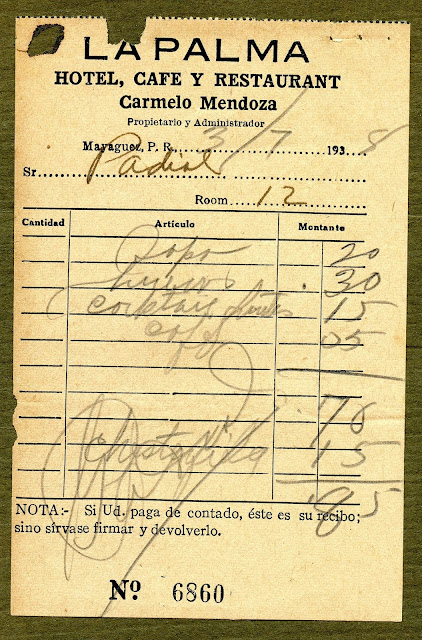 LA PALMA
HOTEL, CAFE Y RESTAURANT
Carmelo Mendoza
Propietario y Administrador
Mayaguez, P. R. 3/7 1938
Sr. Padial
Room 12
Cantidad Artículo Montante
Sopa 20
huevos 30
Cocktail frutas 15
Café 05
70
15
.85
NOTA:- Si Ud. paga de contado, éste es su recibo;
sino sírvase firmar y devolverlo.
Nº 6860